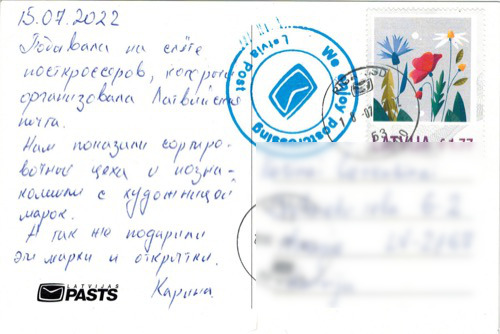 15.07.2022
Побывала на слёте
посткроссеров, который
организовала Латвийская
почта.
Нам показали сортиро-
вочные цеха и позна-
комили с художницей
марок.
А так же подарили
эти марки и открытки.
Карина.
LATVIJAS
PASTS
Latvia Post
We enjoy postcrossing
LATVIJA €1.77
LV-2167